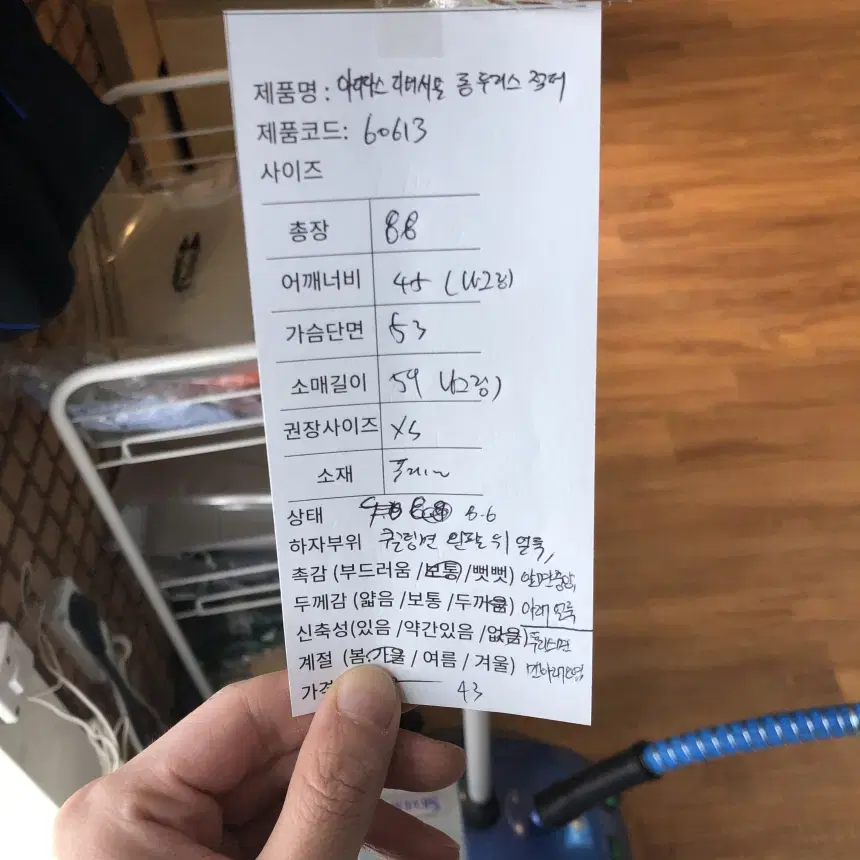 제품명 : 아디다스 리버시블 롱 후리스 점퍼
제품코드: 60613
사이즈
총장 88
어깨너비 45 (나그랑)
가슴단면 53
소매길이 59 나그랑)
권장사이즈 XS
소재
상태 8.6
하자부위 퀼팅면 왼팔 위 얼룩,
촉감 (부드러움 /보통 /뻣뻣) 앞면중앙,
두께감 (얇음 /보통 /두꺼움) 아래 얼룩
신축성(있음 /약간있음 /없음)
계절 (봄,가을 / 여름 / 겨울)
43